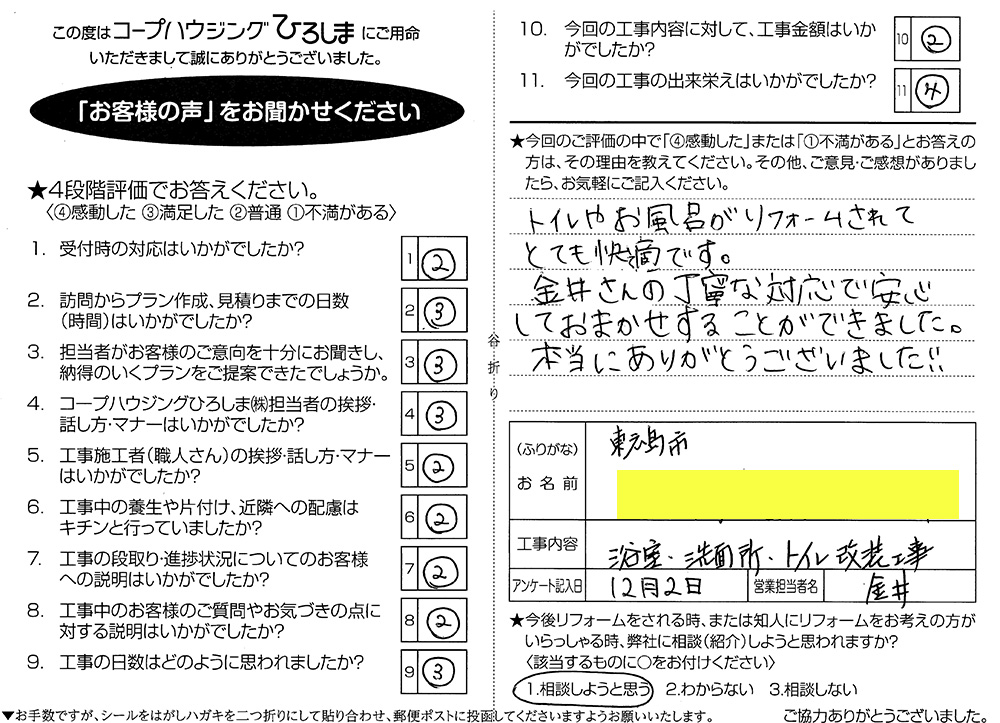 この度はコープハウジングひろしまにご用命
いただきまして誠にありがとうございました。
「お客様の声」をお聞かせください
★4段階評価でお答えください。
〈④感動した ③満足した ②普通 ①不満がある〉
1. 受付時の対応はいかがでしたか?
1 ②
2. 訪問からプラン作成、見積りまでの日数
（時間）はいかがでしたか?
2 ③
3. 担当者がお客様のご意向を十分にお聞きし、
納得のいくプランをご提案できたでしょうか。
3 ③
4. コープハウジングひろしま㈱担当者の挨拶・
話し方・マナーはいかがでしたか?
4 ③
5. 工事施工者（職人さん）の挨拶・話し方・マナー
はいかがでしたか?
5 ②
6. 工事中の養生や片付け、近隣への配慮は
キチンと行っていましたか?
6 ②
7. 工事の段取り・進捗状況についてのお客様
への説明はいかがでしたか?
7 ②
8. 工事中のお客様のご質問やお気づきの点に
対する説明はいかがでしたか?
8 ②
9. 工事の日数はどのように思われましたか?
9 ③
▼お手数ですが、シールをはがしハガキを二つ折りにして貼り合わせ、郵便ポストに投函してくださいますようお願いいたします。
谷折り
10. 今回の工事内容に対して、工事金額はいか
がでしたか?
10 ②
11. 今回の工事の出来栄えはいかがでしたか?
11 ④
★今回のご評価の中で「④感動した」または「①不満がある」とお答えの
方は、その理由を教えてください。その他、ご意見・ご感想がありまし
たら、お気軽にご記入ください。
トイレやお風呂がリフォームされて
とても快適です。
金井さんの丁寧な対応で安心
しておまかせすることができました。
本当にありがとうございました!!
（ふりがな）
お名前
東広島市
工事内容
浴室・洗面所・トイレ改装工事
アンケート記入日 12月2日 営業担当者名 金井
★今後リフォームをされる時、または知人にリフォームをお考えの方が
いらっしゃる時、弊社に相談（紹介）しようと思われますか?
〈該当するものに○をお付けください〉
1.相談しようと思う 2.わからない 3.相談しない
ご協力ありがとうございました。